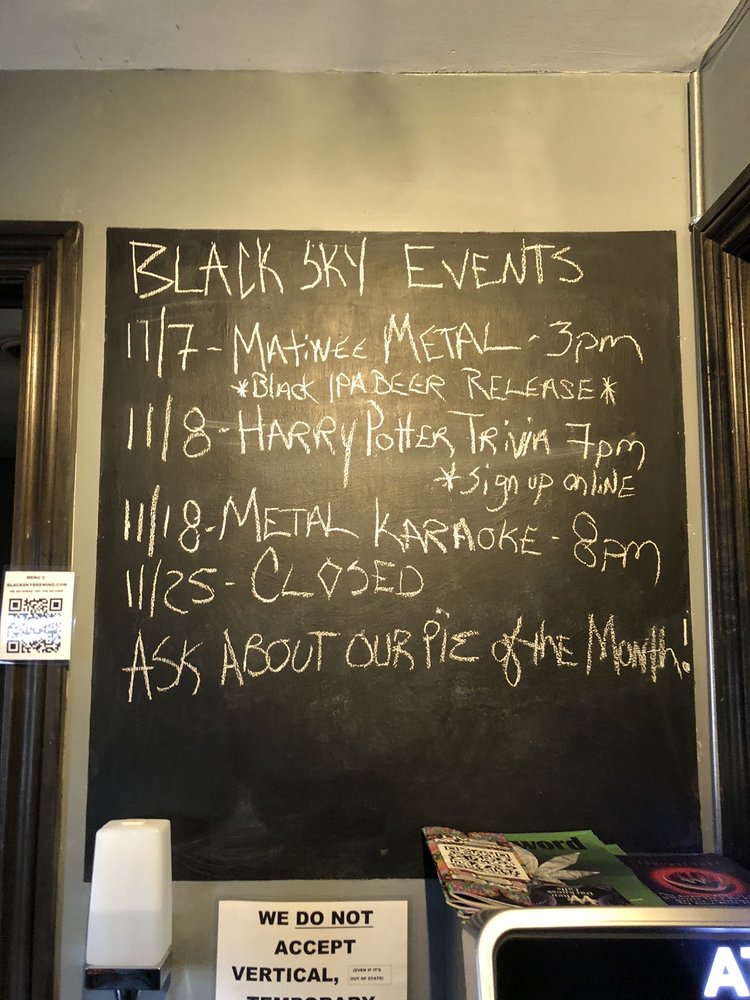 BLACK SKY EVENTS
11/7 - MATiNEE METAL - 3pm
*Black IPA BEER RELEASE*
11/8 - HARRY POTTER TRiViA 7pm
*sign up onliNE
11/18 - METAL KARAOKE - 8pm
11/25 - CLOSED
ASK ABOUT OUR PiE of the Month!
MENU @
BLACKSKYBREWING.COM
word
When
WE DO NOT
ACCEPT
VERTICAL, (EVEN IF IT'S
OUT OF STATE)
TEMPORARY
AT